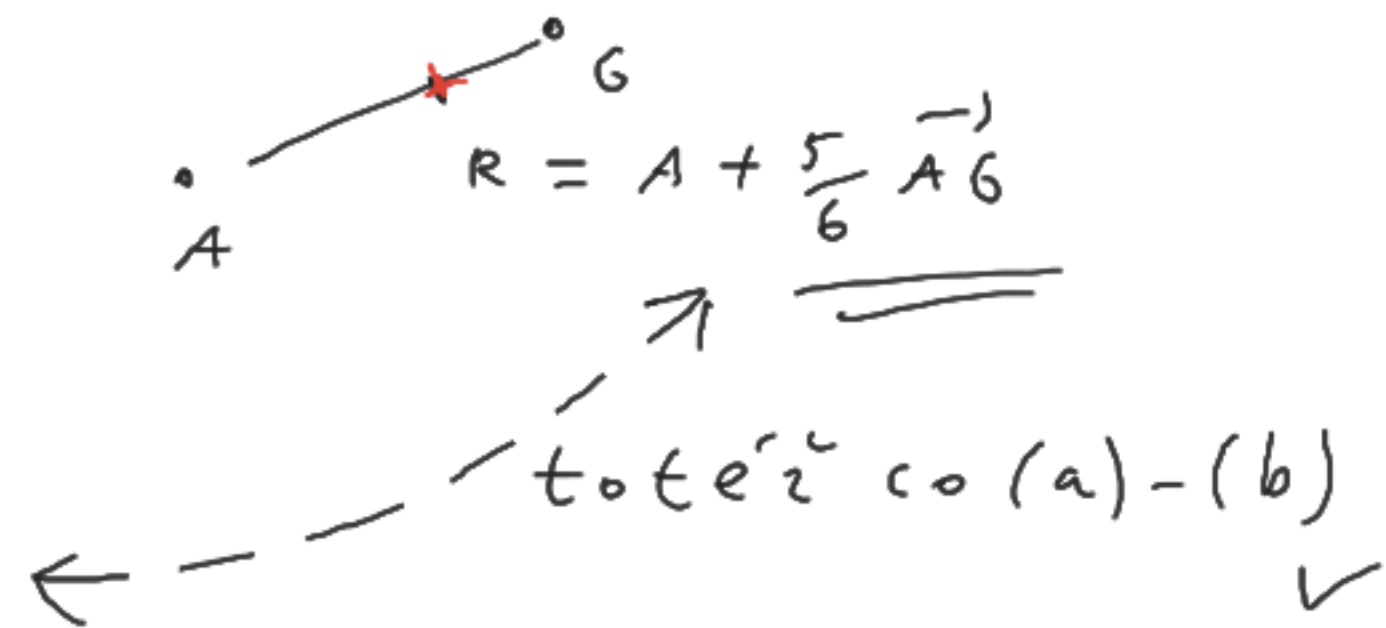 G
R = A + 5/6 \overrightarrow{AG}
A
totéž co (a)-(b)
✓